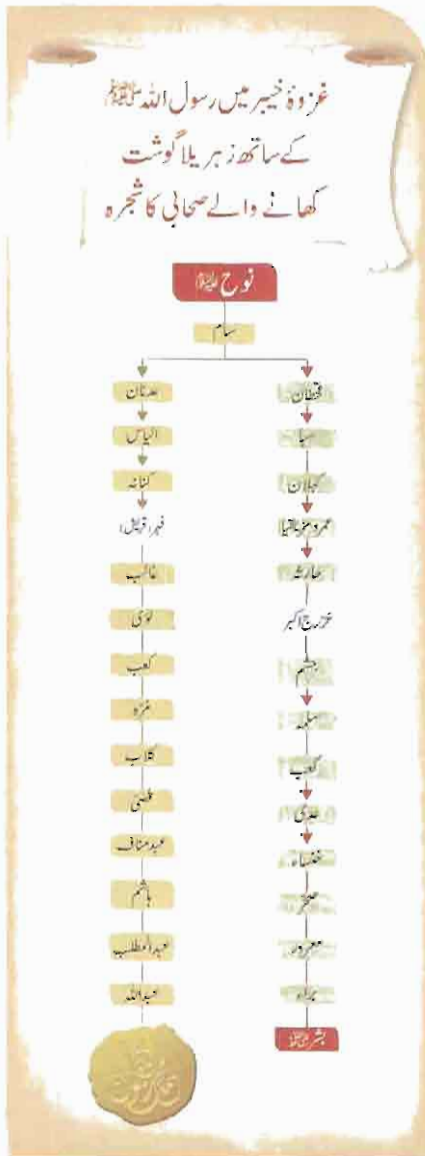 غزوۂ خیبر میں رسول اللہ ﷺ
کے ساتھ زہریلا گوشت
کھانے والے صحابی کا شجرہ
نوح علیہ السلام
سام
قحطان
سبا
کہلان
عمرو مزیقیا
حارثہ
خزرج اکبر
جشم
سلمہ
کعب
عدی
خنساء
صخر
معرور
براء
بشر رضی اللہ عنہ
عدنان
الیاس
کنانہ
فہر (قریش)
غالب
لوئی
کعب
مرہ
کلاب
قصی
عبد مناف
ہاشم
عبدالمطلب
عبداللہ